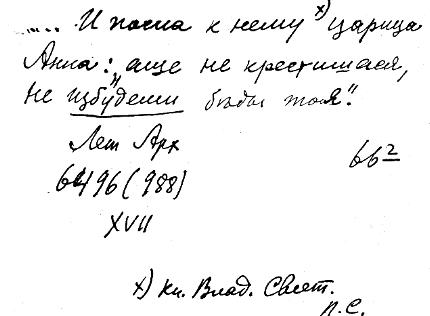 .... И посла к нему х) царица
Анна: „аще не крестишася,
не избудеши беды тоя".
Лет Арх
6496 (988)
66²
XVII
х) кн. Влад. Свят.
П.С.